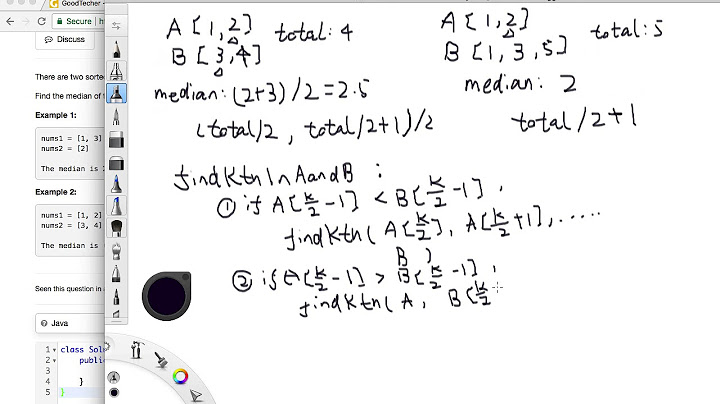 GoodTecher
Secure
Discuss
There are two sorte
Find the median of t
Example 1:
nums1 = [1, 3]
nums2 = [2]
The median is
Example 2:
nums1 = [1, 2]
nums2 = [3, 4]
The median is
Seen this question in
Java
1 class Solu
2 public
3
4 }
5 }
A [1,2] total: 4
B [3,4]
median: (2+3)/2=2.5
(total/2, total/2+1)/2
A [1,2] total: 5
B [1, 3, 5]
median: 2
total/2+1
findKthInAandB :
① if A[k/2-1] < B[k/2-1],
findKth(A[k/2], A[k/2+1], .....
B)
② if A[k/2-1] > B[k/2-1],
findKth(A, B[k/2